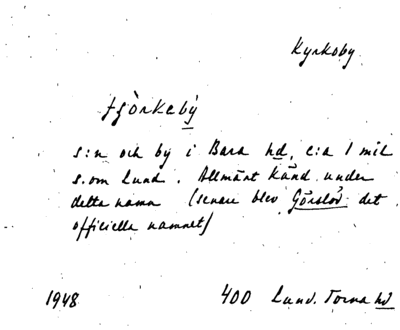 Kyrkoby
tjörkeby
s:n och by i Bara hd, c:a 1 mil
s. om Lund. Allmänt känd under
detta namn (senare blev Görslöv det
officiella namnet)
1948 400 Lund. Torna hd